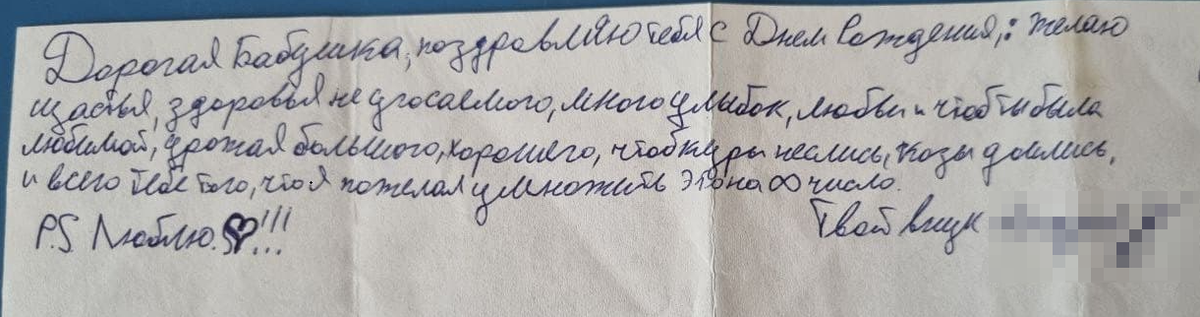 Дорогая Бабушка, поздравляю тебя с Днем Рождения,: желаю
щастья, здоровья не угосаемого, много улыбок, любви и чтоб ты была
любимой, урожая большого, хорошего, чтоб куры неслись, козы доились,
и всего тебе того, что я пожелал умножить это на ∞ число.
P.S Люблю.♡!!!
Твой внук